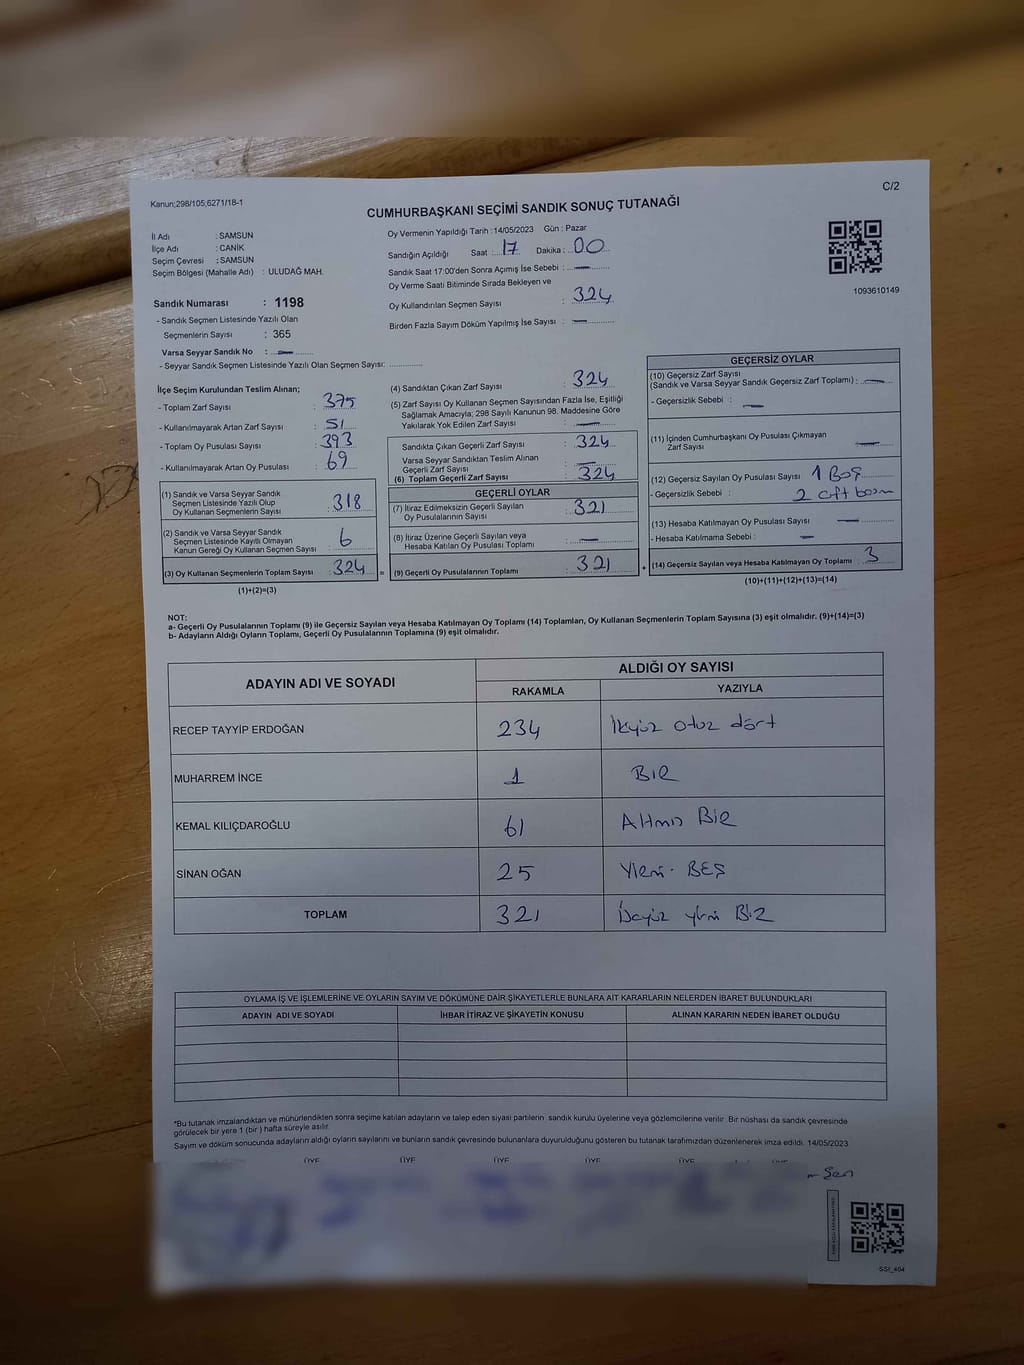 C/2
Kanun;298/105,6271/18-1
CUMHURBAŞKANI SEÇİMİ SANDIK SONUÇ TUTANAĞI
İl Adı : SAMSUN
İlçe Adı : CANİK
Seçim Çevresi : SAMSUN
Seçim Bölgesi (Mahalle Adı) : ULUDAĞ MAH.
Sandık Numarası : 1198
- Sandık Seçmen Listesinde Yazılı Olan
Seçmenlerin Sayısı : 365
Varsa Seyyar Sandık No : —
- Seyyar Sandık Seçmen Listesinde Yazılı Olan Seçmen Sayısı:
Oy Vermenin Yapıldığı Tarih :14/05/2023 Gün : Pazar
Sandığın Açıldığı Saat : 17 Dakika : 00
Sandık Saat 17:00'den Sonra Açımış İse Sebebi : —
Oy Verme Saati Bitiminde Sırada Bekleyen ve
Oy Kullandırılan Seçmen Sayısı : 324
Birden Fazla Sayım Döküm Yapılmış İse Sayısı : —
1093610149
İlçe Seçim Kurulundan Teslim Alınan;
- Toplam Zarf Sayısı : 375
- Kullanılmayarak Artan Zarf Sayısı : 51
- Toplam Oy Pusulası Sayısı : 393
- Kullanılmayarak Artan Oy Pusulası : 69
(1) Sandık ve Varsa Seyyar Sandık
Seçmen Listesinde Yazılı Olup
Oy Kullanan Seçmenlerin Sayısı : 318
(2) Sandık ve Varsa Seyyar Sandık
Seçmen Listesinde Kayıtlı Olmayan
Kanun Gereği Oy Kullanan Seçmen Sayısı : 6
(3) Oy Kullanan Seçmenlerin Toplam Sayısı : 324 =
(1)+(2)=(3)
(4) Sandıktan Çıkan Zarf Sayısı : 324
(5) Zarf Sayısı Oy Kullanan Seçmen Sayısından Fazla İse, Eşitliği
Sağlamak Amacıyla; 298 Sayılı Kanunun 98. Maddesine Göre
Yakılarak Yok Edilen Zarf Sayısı : —
Sandıkta Çıkan Geçerli Zarf Sayısı : 324
Varsa Seyyar Sandıktan Teslim Alınan
Geçerli Zarf Sayısı : —
(6) Toplam Geçerli Zarf Sayısı : 324
GEÇERLİ OYLAR
(7) İtiraz Edilmeksizin Geçerli Sayılan
Oy Pusulalarının Sayısı : 321
(8) İtiraz Üzerine Geçerli Sayılan veya
Hesaba Katılan Oy Pusulası Toplamı : —
(9) Geçerli Oy Pusulalarının Toplamı : 321 +
GEÇERSİZ OYLAR
(10) Geçersiz Zarf Sayısı
(Sandık ve Varsa Seyyar Sandık Geçersiz Zarf Toplamı) : —
- Geçersizlik Sebebi : —
(11) İçinden Cumhurbaşkanı Oy Pusulası Çıkmayan
Zarf Sayısı : —
(12) Geçersiz Sayılan Oy Pusulası Sayısı : 1 Boş
- Geçersizlik Sebebi : 2 çift
(13) Hesaba Katılmayan Oy Pusulası Sayısı : —
- Hesaba Katılmama Sebebi : —
(14) Geçersiz Sayılan veya Hesaba Katılmayan Oy Toplamı : 3
(10)+(11)+(12)+(13)=(14)
NOT:
a- Geçerli Oy Pusulalarının Toplamı (9) ile Geçersiz Sayılan veya Hesaba Katılmayan Oy Toplamı (14) Toplamları, Oy Kullanan Seçmenlerin Toplam Sayısına (3) eşit olmalıdır. (9)+(14)=(3)
b- Adayların Aldığı Oyların Toplamı, Geçerli Oy Pusulalarının Toplamına (9) eşit olmalıdır.
ADAYIN ADI VE SOYADI
ALDIĞI OY SAYISI
RAKAMLA YAZIYLA
RECEP TAYYİP ERDOĞAN 234 İkiyüz otuz dört
MUHARREM İNCE 1 BİR
KEMAL KILIÇDAROĞLU 61 Altmış BİR
SİNAN OĞAN 25 Yirmi BEŞ
TOPLAM 321 Üçyüz yirmi Bir
OYLAMA İŞ VE İŞLEMLERİNE VE OYLARIN SAYIM VE DÖKÜMÜNE DAİR ŞİKAYETLERLE BUNLARA AİT KARARLARIN NELERDEN İBARET BULUNDUKLARI
ADAYIN ADI VE SOYADI İHBAR İTİRAZ VE ŞİKAYETİN KONUSU ALINAN KARARIN NEDEN İBARET OLDUĞU
*Bu tutanak imzalandıktan ve mühürlendikten sonra seçime katılan adayların ve talep eden siyasi partilerin sandık kurulu üyelerine veya gözlemcilerine verilir. Bir nüshası da sandık çevresinde
görülecek bir yere 1 (bir ) hafta süreyle asılır.
Sayım ve döküm sonucunda adayların aldığı oyların sayılarını ve bunların sandık çevresinde bulunanlara duyurulduğunu gösteren bu tutanak tarafımızdan düzenlenerek imza edildi. 14/05/2023
ÜYE ÜYE ÜYE ÜYE ÜYE ÜYE
Şen
SSI_404